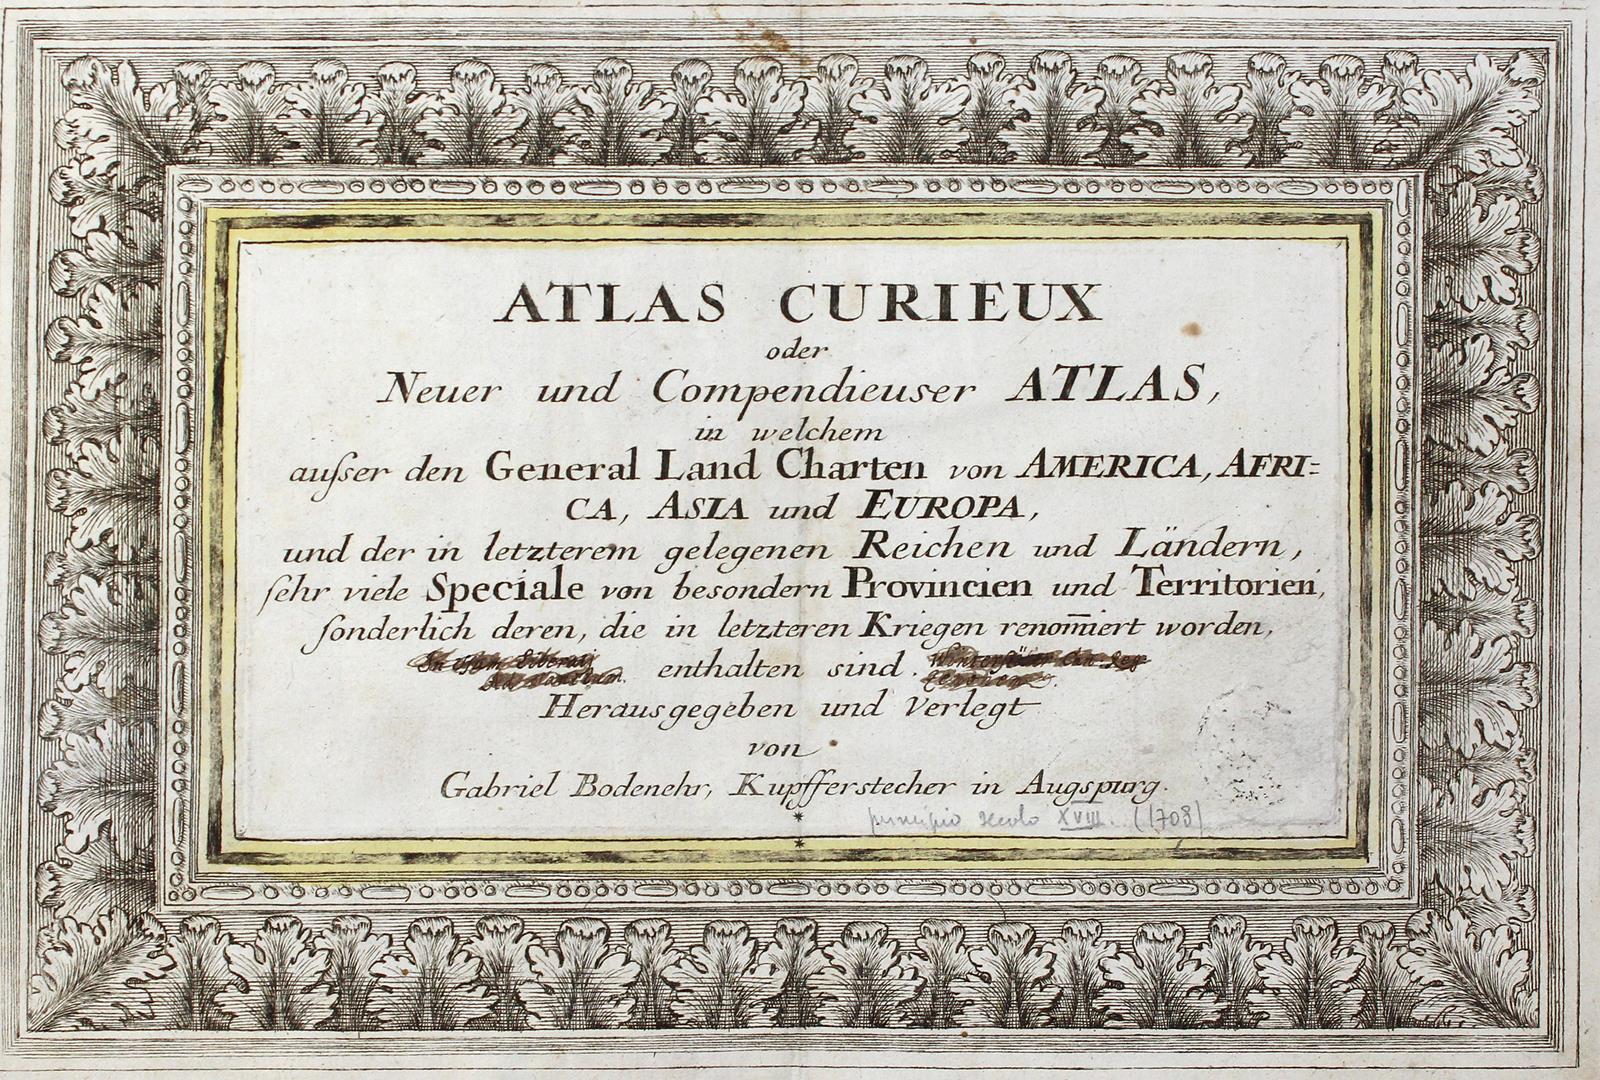 ATLAS CURIEUX
oder
Neuer und Compendieuser ATLAS,
in welchem
auſser den General Land Charten von AMERICA, AFRI=
CA, ASIA und EUROPA,
und der in letzterem gelegenen Reichen und Ländern,
ſehr viele Speciale von besondern Provincien und Territorien,
ſonderlich deren, die in letzteren Kriegen renom̄iert worden,
enthalten sind.
Herausgegeben und Verlegt
von
Gabriel Bodenehr, Kupfferstecher in Augspurg.
principio XVIII. (1708)